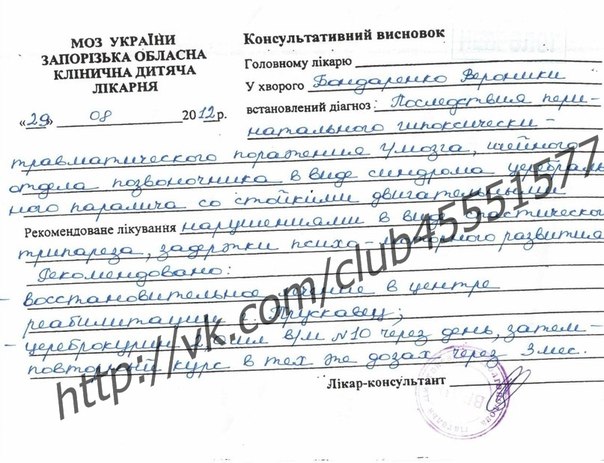 МОЗ УКРАЇНИ
ЗАПОРІЗЬКА ОБЛАСНА
КЛІНИЧНА ДИТЯЧА
ЛІКАРНЯ
«29» 08 2012р.
Консультативний висновок
Головному лікарю
У хворого Бондаренко Вероники
встановлений діагноз: Последствия пери-
натального гипоксически-
травматического поражения г/мозга, шейного
отдела позвоночника в виде синдрома церебраль-
ного паралича со стойкими двигательными
Рекомендоване лікування нарушениями в виде спастического
трипареза, задержки психо-моторного развития
Рекомендовано:
- восстановительное лечение в центре
реабилитации г. Трускавец;
- цереброкурин в/м №10 через день, затем -
повторный курс в тех же дозах через 3 мес.
Лікар-консультант
http://vk.com/club45551577